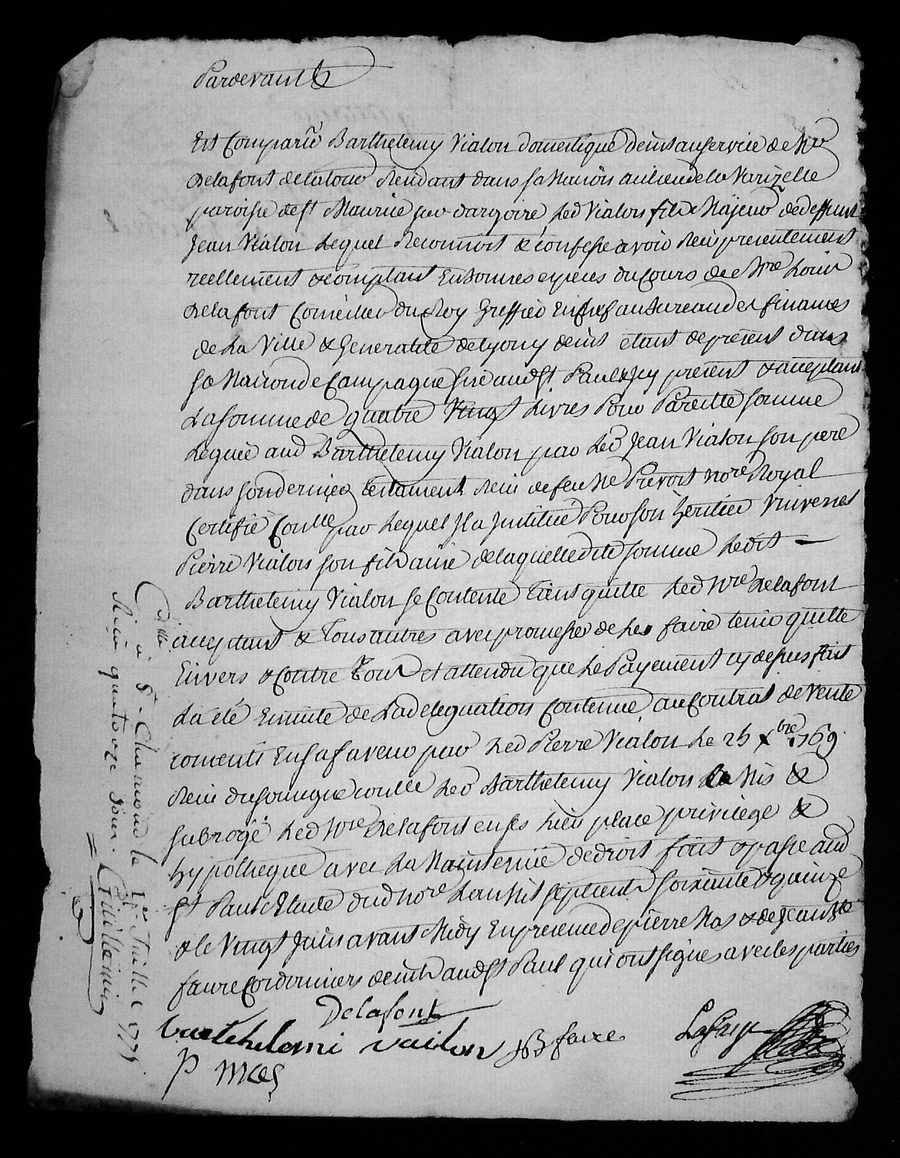 Pardevant &
Est Comparu Barthelemy Vialon domestique demt au service de Mr
Delafont delatour Residant dans sa Maison au lieu de la Varizelle
paroise de st Maurice sur dargoire led Vialon fils Majeur de deffunt
Jean Vialon Lequel Reconnoit & confesse avoir Reçu presentement
reellement & comptant En bonnes especes du Cours de Mre Louis
Delafont Coner du Roy Greffier En chef au Bureau des finances
de La Ville & Generalité de Lyon y demt étant de présent dans
sa Maison de Campagne size aud St Paul Icy present & acceptant
La somme de quatre Vingt Livres Pour Pareille somme
Leguée aud Barthelemy Vialon par Led Jean Vialon son pere
dans son dernier testament Reçu de feu Me Prevost nore Royal
Certifié Contlé par Lequel Il a Institué Pour son heritier Universel
Pierre Vialon son fils ainé de laquelle dite somme Ledit
Barthelemy Vialon se Contente tient quitte Led Mre Delafont
acceptant & Tous autres avec promesses de Les faire tenir quitte
Envers & Contre Tous et attendu que Le Payement cy dessus fait
La été Ensuite de La délégation Contenue au Contrat de Vente
consenti En sa faveur par Led Pierre Vialon Le 25 xbre 1769
Reçu du soussigné contlé Led Barthelemy Vialon La Mis &
subrogé Led Mre Delafont en ses Lieu place privilege &
hypotheque avec La Maintenüe de droit fait & passé aud
St Paul Etude dud nore L'an Mil sept cent soixante & quinze
& le Vingt Juin avant Midy En presence de pierre Mas & de Jean Bte
faure Cordonniers demt aud St Paul qui ont signés avec les parties
Delafont
barthelemi vailon JB faure
p mas
Contllé à St Chamond le 1er Juillet 1775
Reçu quatorze sous. Guillemin